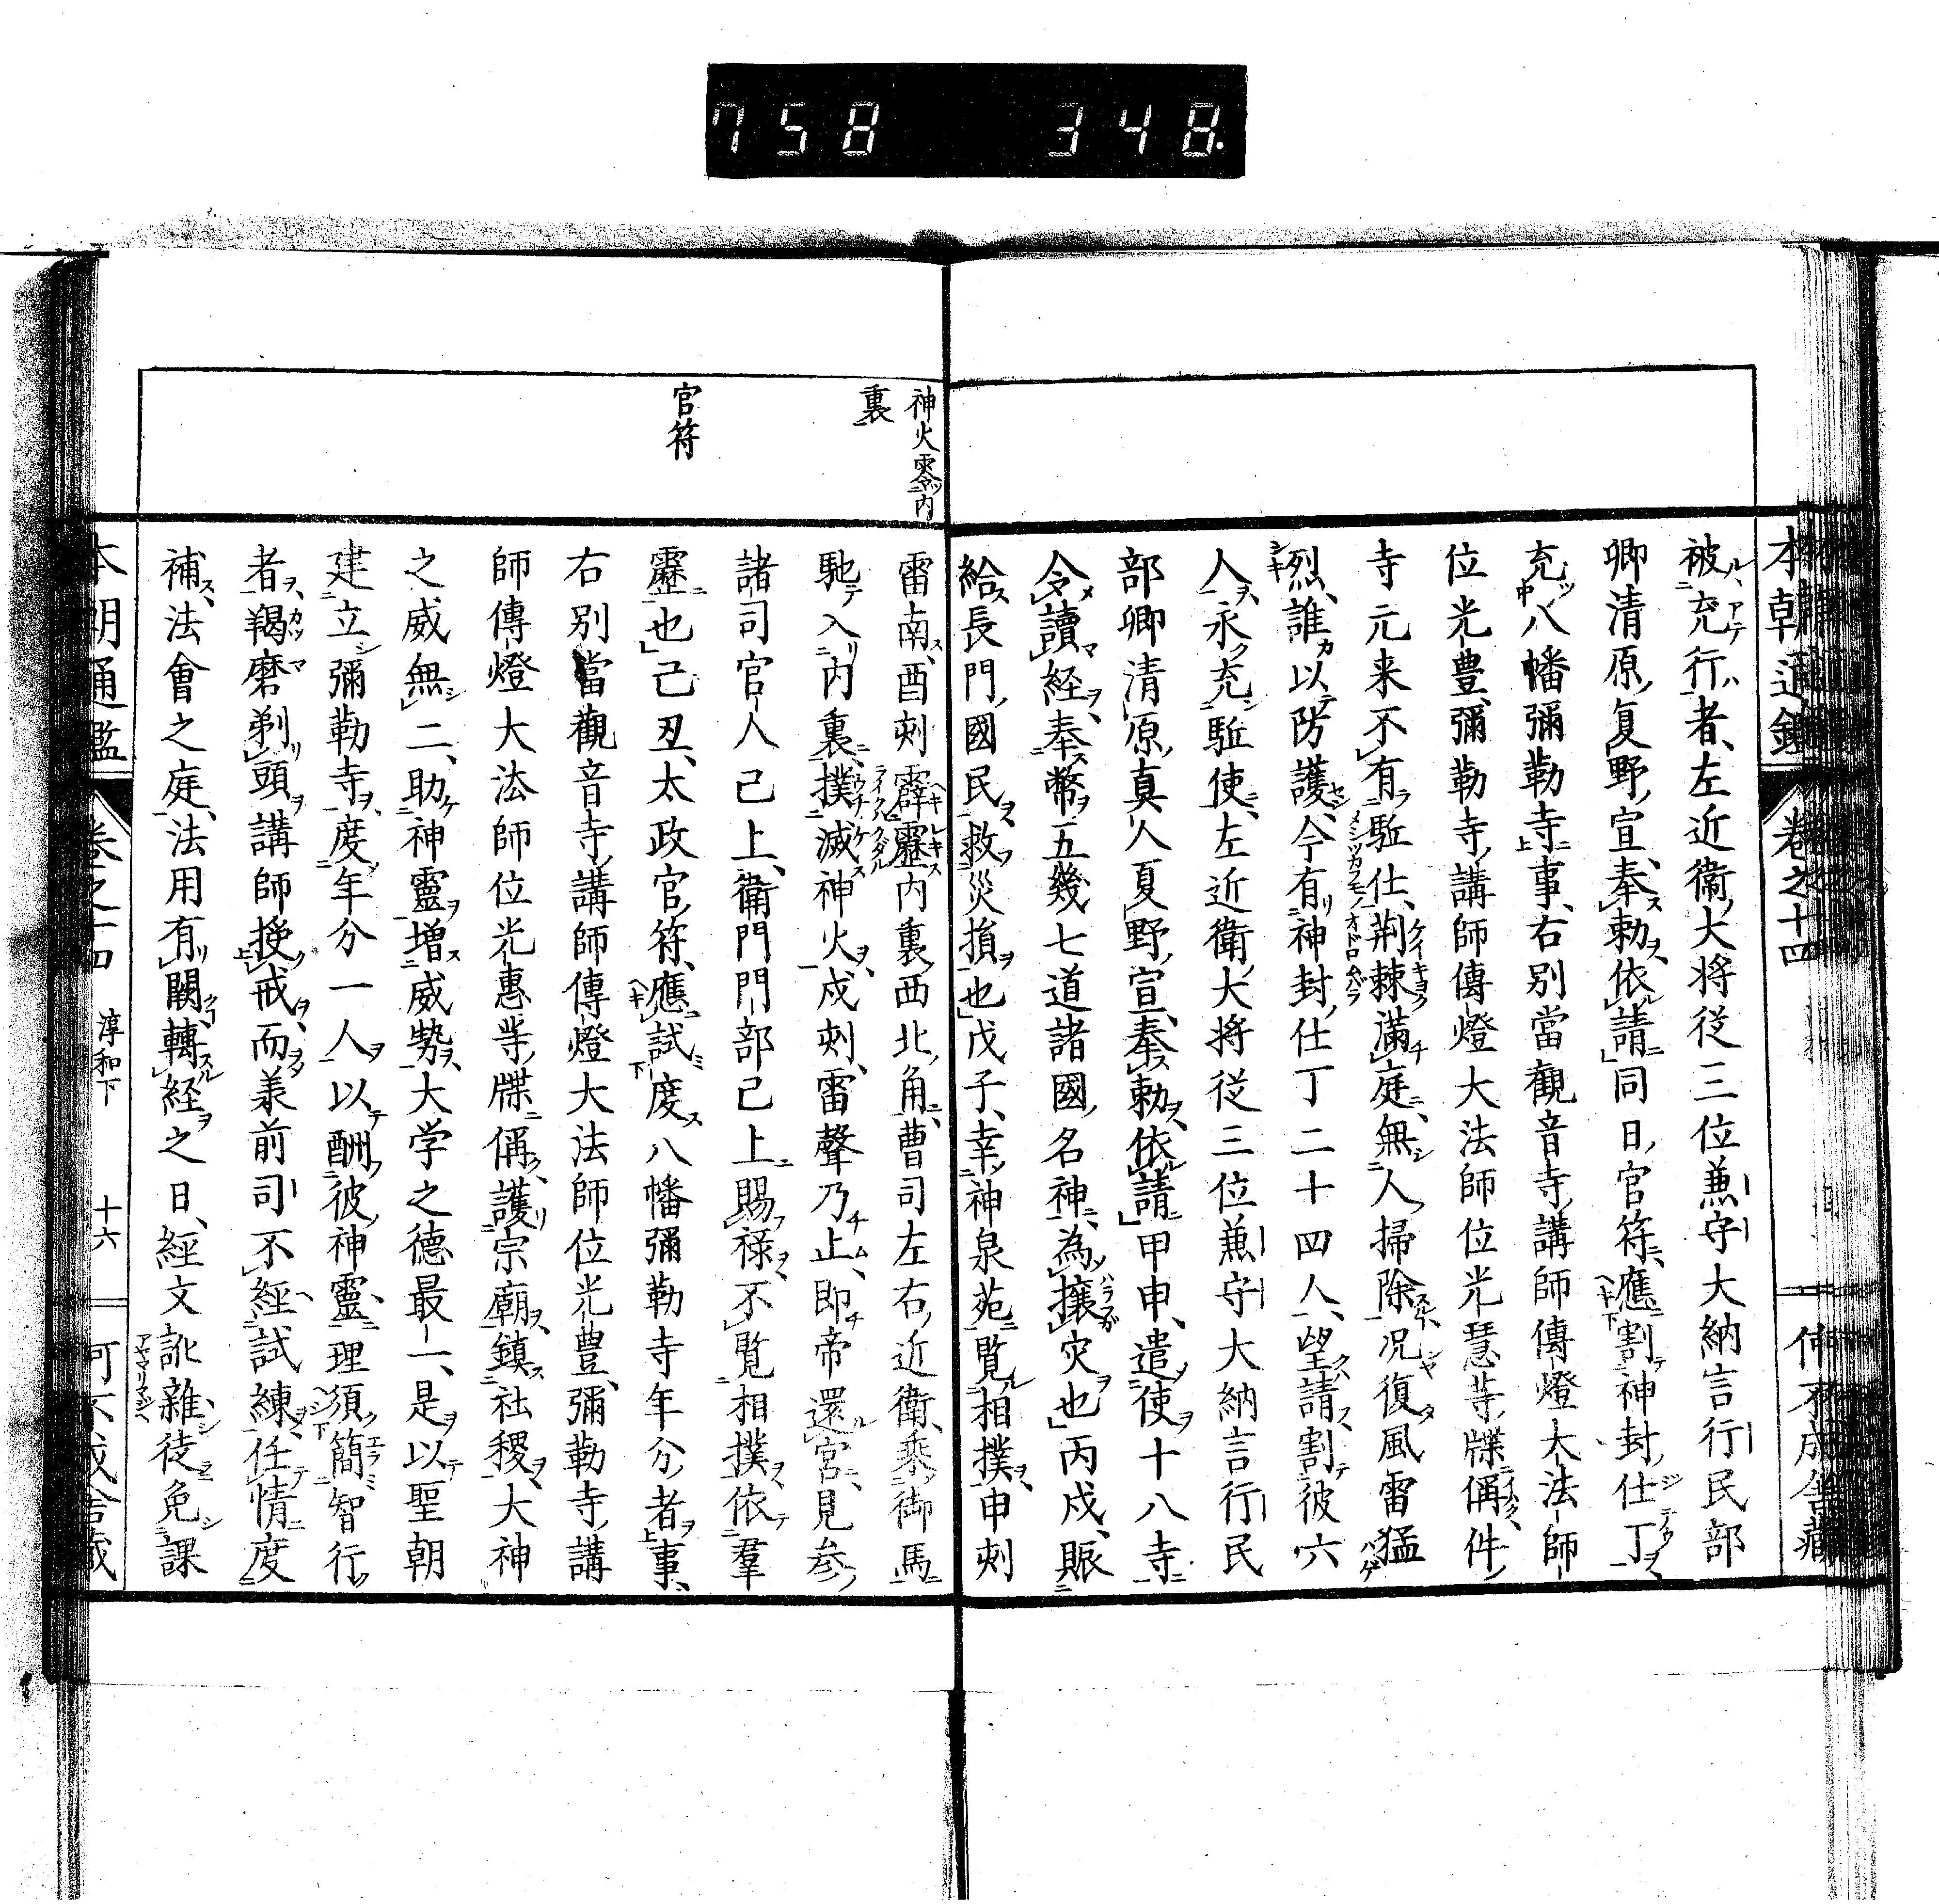 758 348.
本朝通鑑 卷之十四
被充行者、左近衞大将従三位兼守大納言行民部
卿清原夏野宣、奉勅依請同日官符、應割神封仕丁
充八幡彌勒寺事、右別當觀音寺講師傳燈大法師
位光豊、彌勒寺講師傳燈大法師位光慧等牒偁件
寺元来不有駈仕、荆棘滿庭、無人掃除、况復風雷猛
烈、誰以防護、今有神封仕丁二十四人、望請割彼六
人永充駈使、左近衞大将従三位兼守大納言行民
部卿清原真人夏野宣、奉勅依請甲申、遣使十八寺
令讀経、奉幣五幾七道諸國名神、為攘灾也丙戍、賑
給長門國民、救災損也戊子、幸神泉苑覧相撲、申刺
神火零内
裏
官符
雷南、酉刺霹靂内裏西北角、曹司左右近衞、乘御馬
馳入内裏、撲滅神火、戍刺、雷聲乃止、即帝還宮、見参
諸司官人已上、衞門門部已上賜禄、不覧相撲、依羣
靂也己丑、太政官符、應試度八幡彌勒寺年分者事、
右別當觀音寺講師傳燈大法師位光豊、彌勒寺講
師傳燈大法師位光惠等牒偁、護宗廟、鎮社稷、大神
之威無二、助神靈増威勢、大学之德最一、是以聖朝
建立彌勒寺、度年分一人以酬彼神靈、理須簡智行
者、羯磨剃頭講師授戒、而羕前司不経試練、任情度
補、法會之庭、法用有闕、轉経之日、經文訛雜、徒免課
本朝通鑑 卷之十四 淳和下 十六